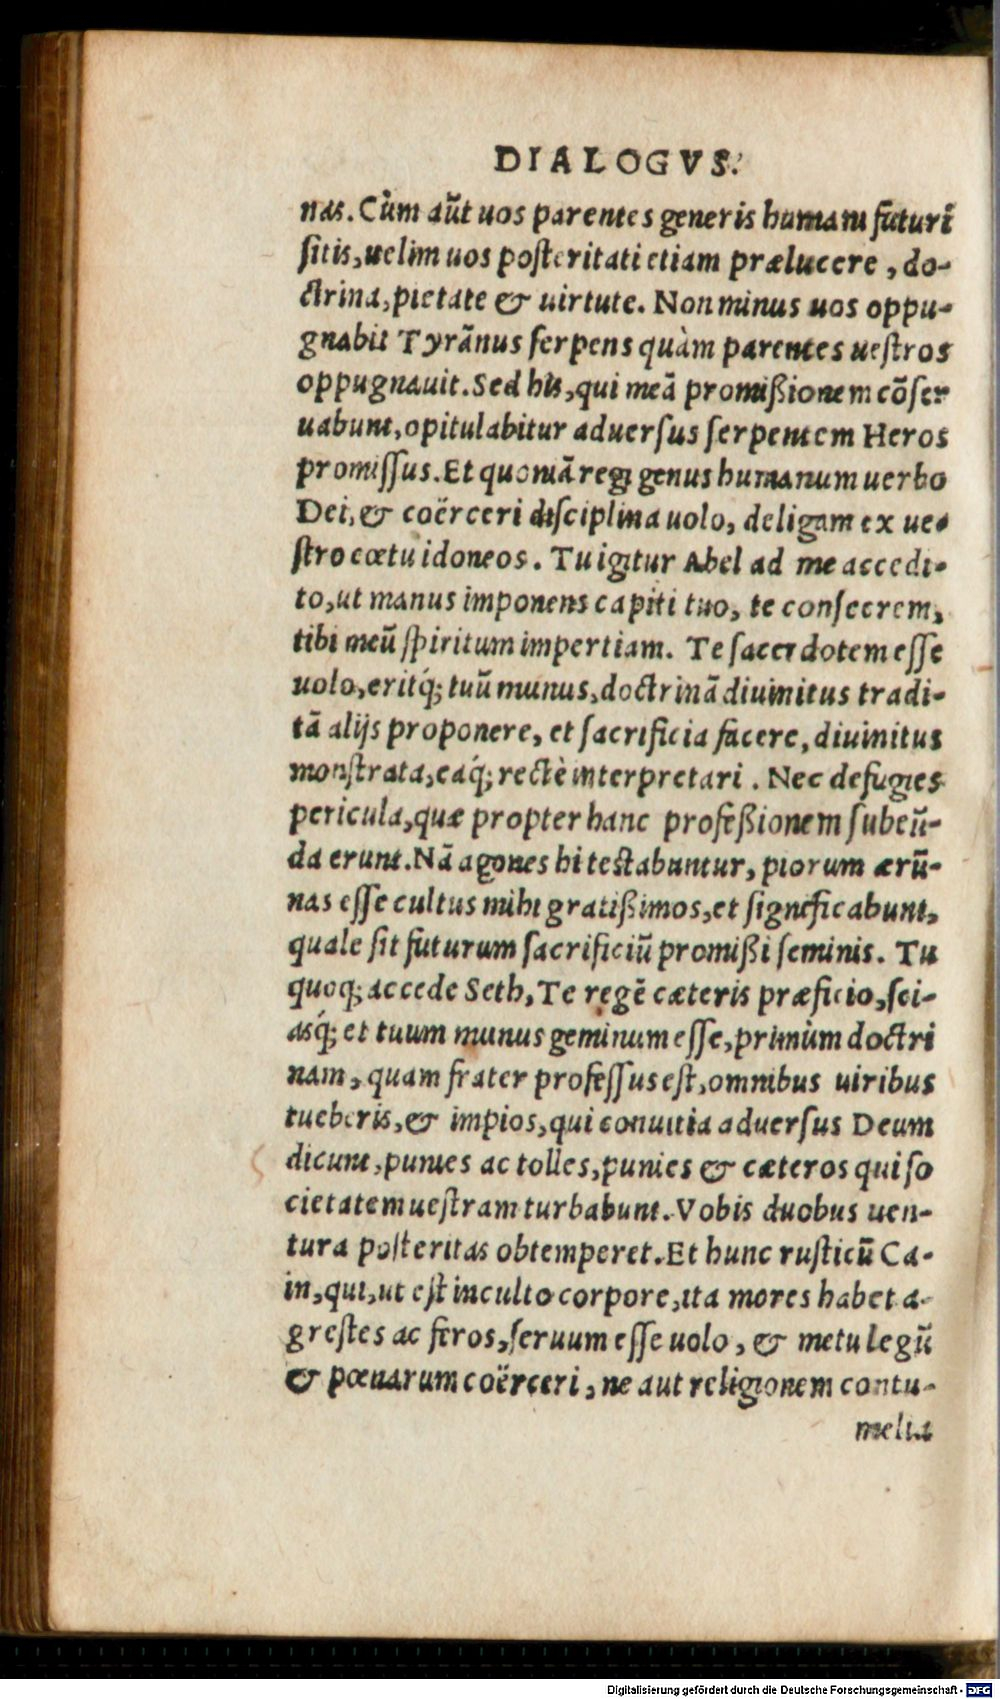 DIALOGVS.
nas. Cùm aũt uos parentes generis humani futuri
sitis, uelim uos posteritati etiam prælucere, do-
ctrina, pietate & uirtute. Non minus uos oppu-
gnabit Tyrãnus serpens quàm parentes uestros
oppugnauit. Sed his, qui meã promißionem cõser
uabunt, opitulabitur aduersus serpentem Heros
promissus. Et quoniã regi genus humanum uerbo
Dei, & coërceri disciplina uolo, deligam ex ue-
stro cœtu idoneos. Tu igitur Abel ad me accedi-
to, ut manus imponens capiti tuo, te consecrem,
tibi meũ spiritum impertiam. Te sacerdotem esse
uolo, eritq́; tuũ munus, doctrinã diuinitus tradi-
tã alijs proponere, et sacrificia facere, diuinitus
monstrata, eaq́; rectè interpretari. Nec defugies
pericula, quæ propter hanc profeßionem subeũ-
da erunt. Nã agones hi testabuntur, piorum ærũ-
nas esse cultus mihi gratißimos, et significabunt,
quale sit futurum sacrificiũ promißi seminis. Tu
quoq; accede Seth, Te regẽ cæteris præficio, sci-
asq́; et tuum munus geminum esse, primùm doctri
nam, quam frater professus est, omnibus uiribus
tueberis, & impios, qui conuitia aduersus Deum
dicunt, punies ac tolles, punies & cæteros qui so
cietatem uestram turbabunt. Vobis duobus uen-
tura posteritas obtemperet. Et hunc rusticũ Ca-
in, qui, ut est inculto corpore, ita mores habet a-
grestes ac feros, seruum esse uolo, & metu legũ
& pœnarum coërceri, ne aut religionem contu-
melia
Digitalisierung gefördert durch die Deutsche Forschungsgemeinschaft - DFG